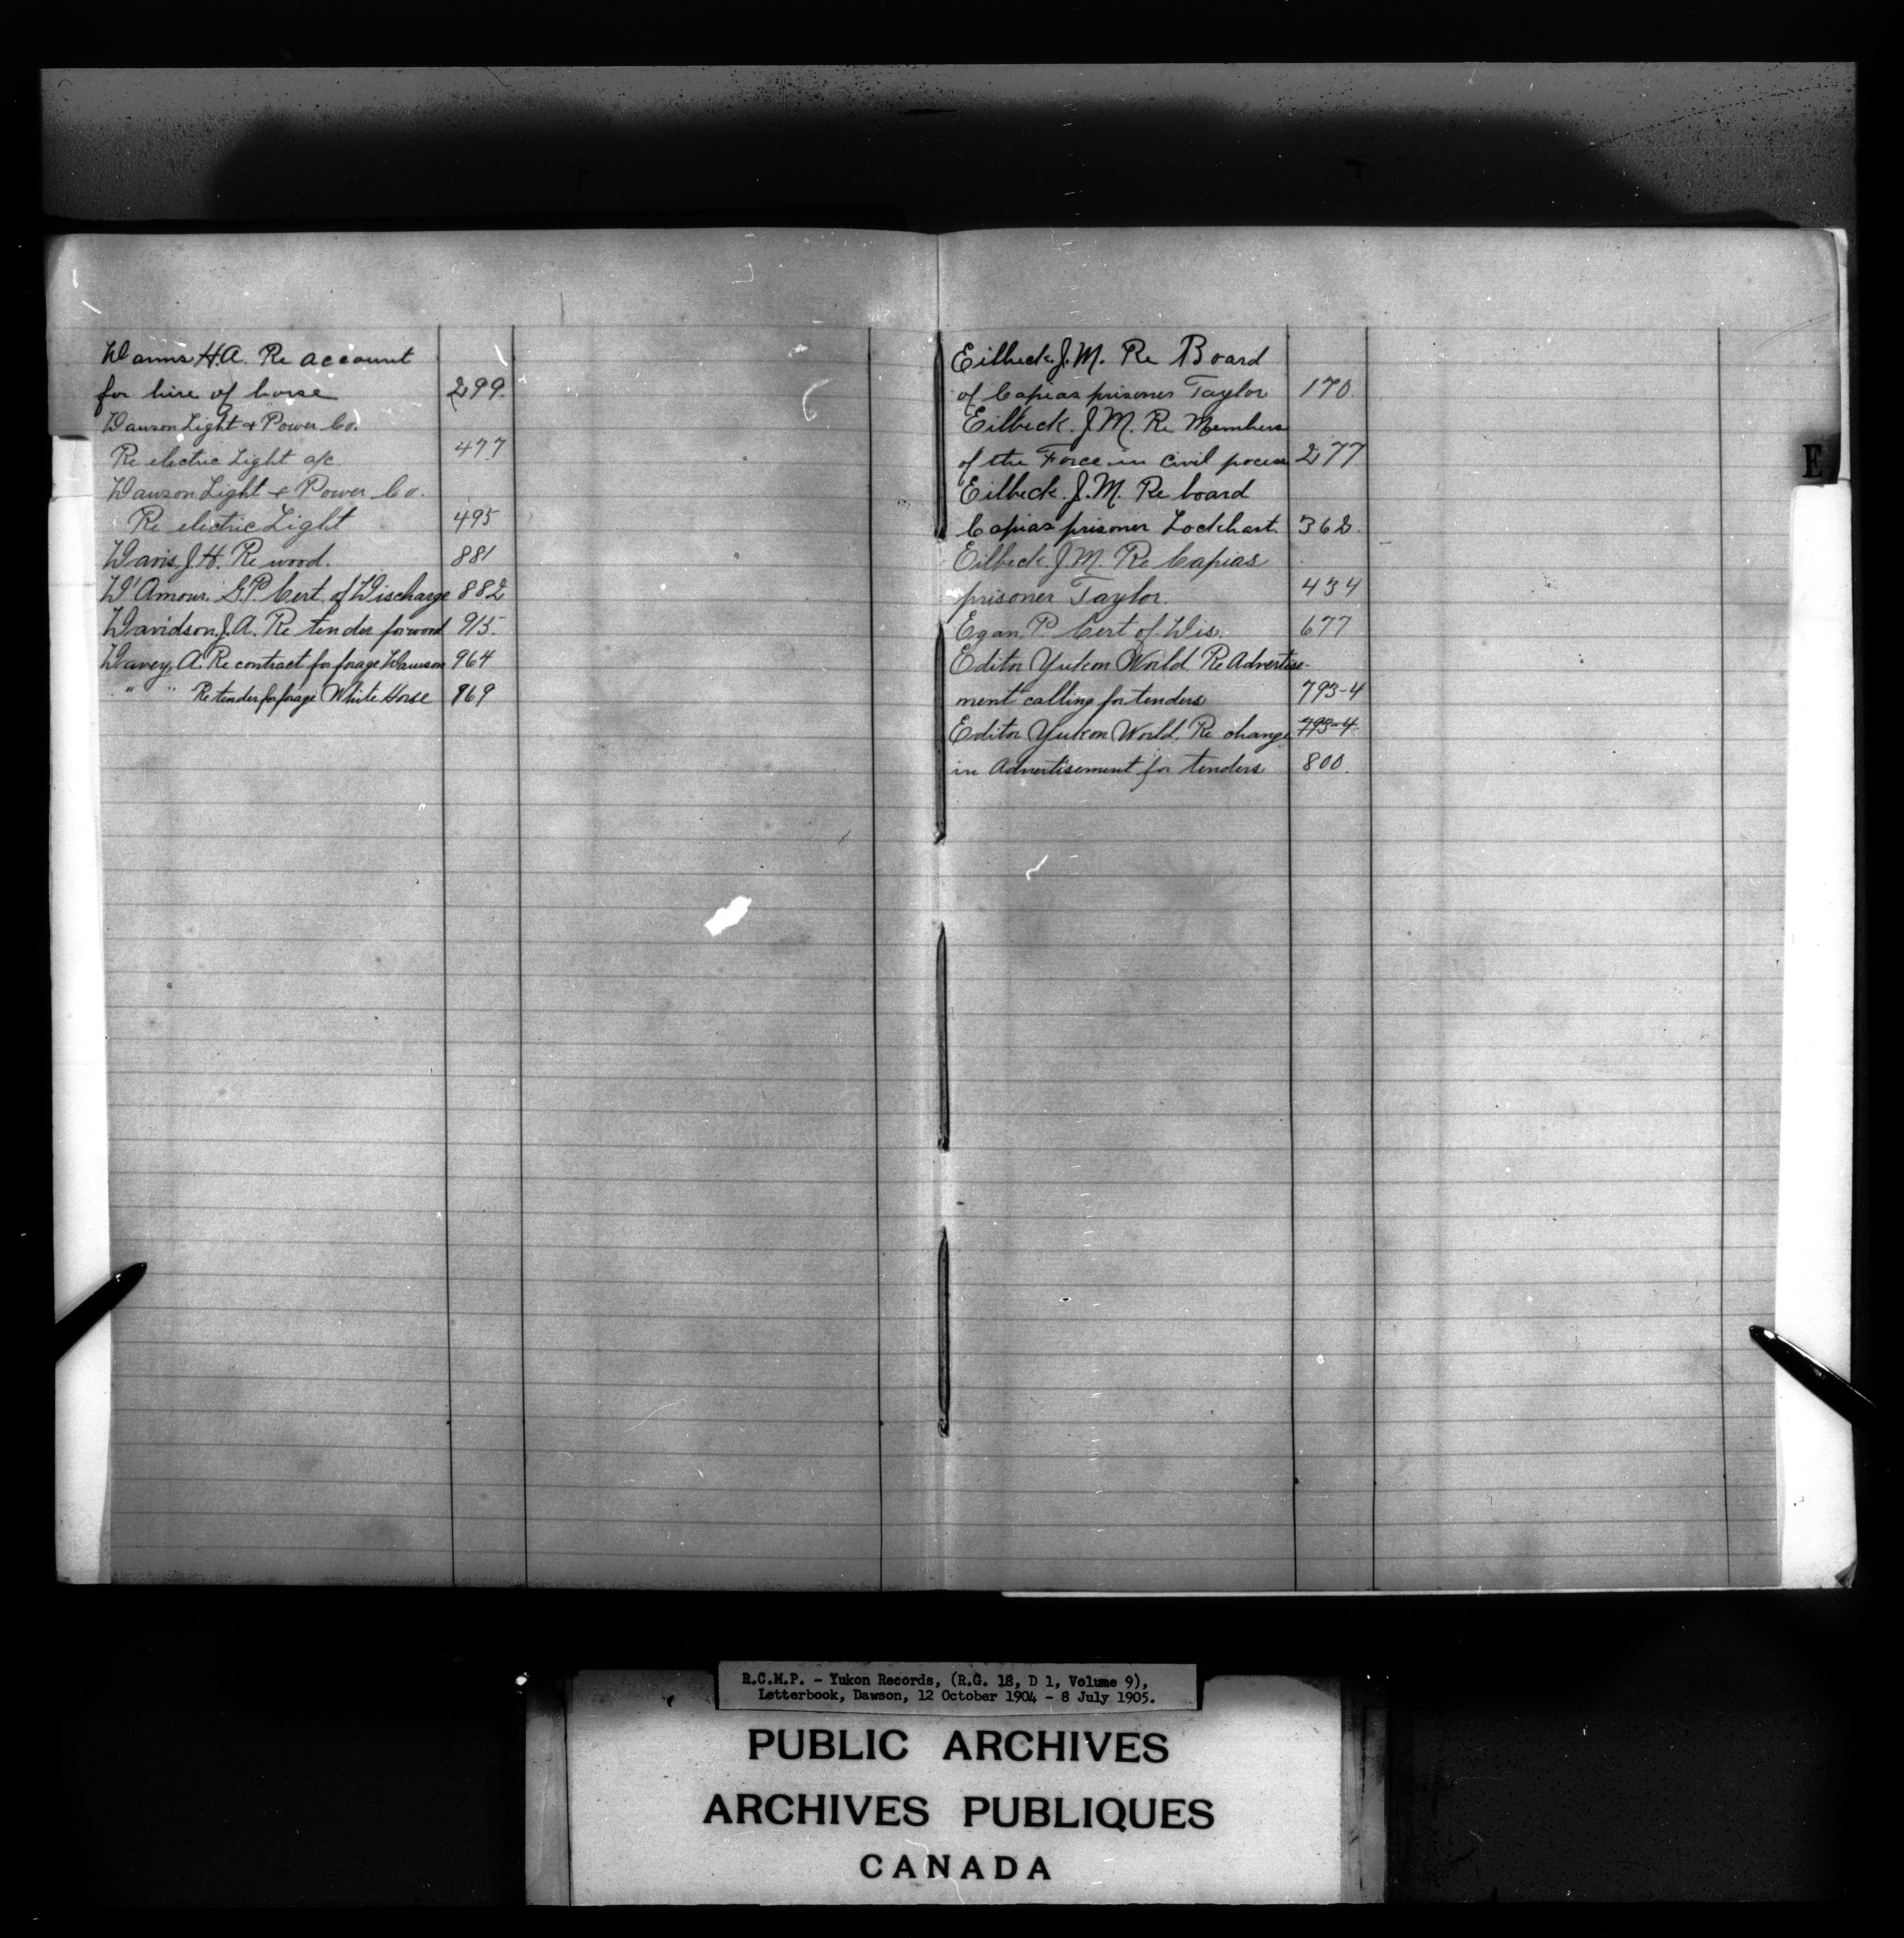 Danns H.A. Re account
for hire of horse 299.
Dawson Light & Power Co.
Re electric Light a/c. 477
Dawson Light & Power Co.
Re electric Light 495
Davis J.H. Re wood. 881
D'Amour. G.P. Cert. of Discharge 882
Davidson, J.A. Re tender for wood 915.
Davey, A. Re contract for forage Dawson 964
" " Re tender for forage White Horse 969
Eilbeck. J.M. Re Board
of Capias prisoner Taylor 170.
Eilbeck. J.M. Re Members
of the Force in Civil pocess 277
Eilbeck. J.M. Re board
Capias prisoner Lockhart. 362.
Eilbeck. J.M. Re Capias
prisoner Taylor. 434
Egan, P. Cert of Dis. 677
Editor Yukon World. Re Advertise-
ment calling for tenders 793-4
Editor Yukon World. Re change 793-4
in Advertisement for tenders 800.
E
R.C.M.P. - Yukon Records, (R.G. 18, D 1, Volume 9),
Letterbook, Dawson, 12 October 1904 - 8 July 1905.
PUBLIC ARCHIVES
ARCHIVES PUBLIQUES
CANADA